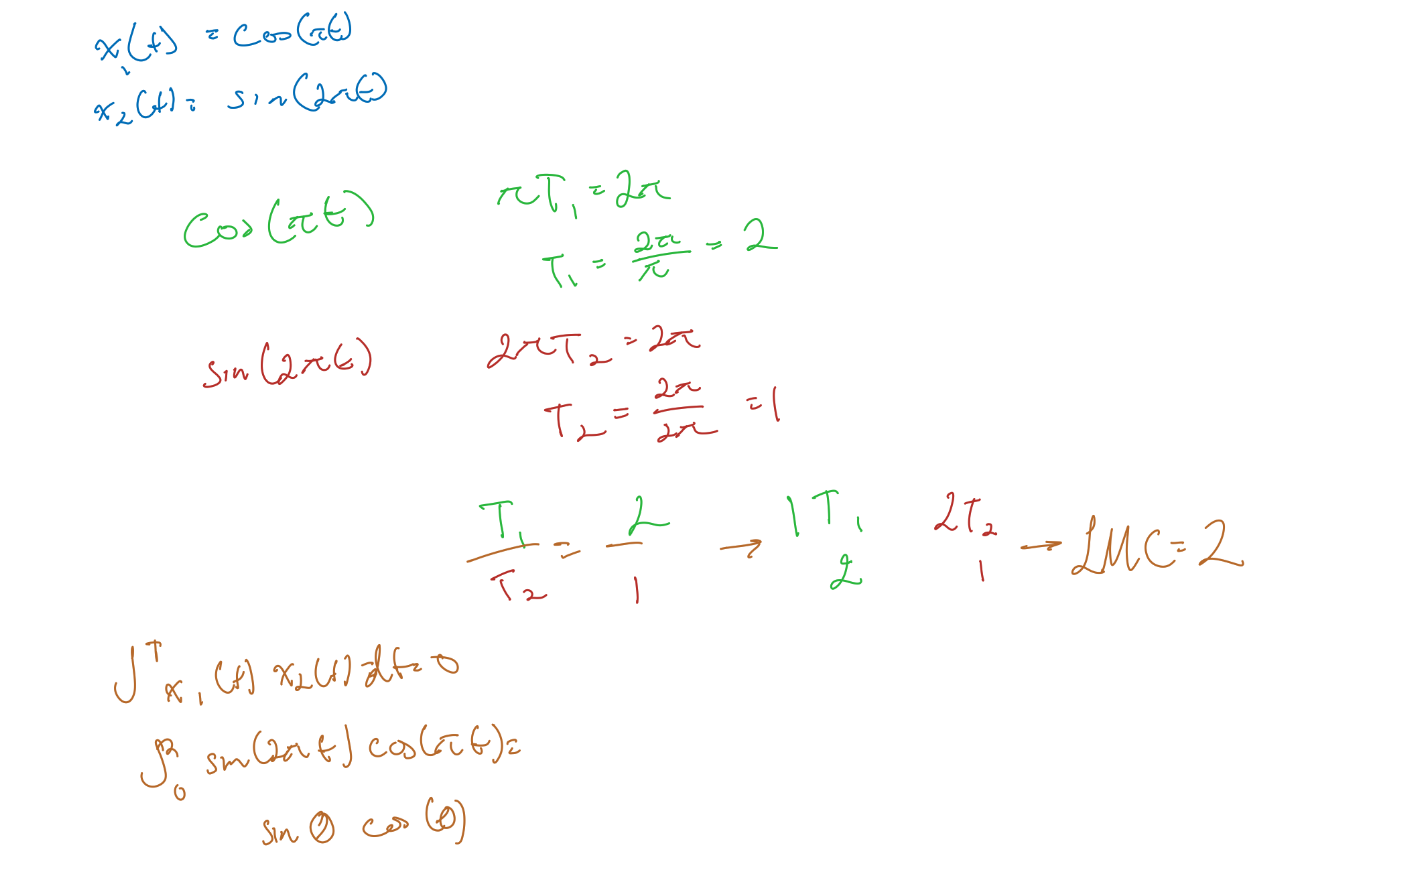 x₁(t) = cos(πt)
x₂(t) = sin(2πt)
cos(πt) πT₁ = 2π
T₁ = 2π/π = 2
sin(2πt) 2πT₂ = 2π
T₂ = 2π/2π = 1
T₁/T₂ = 2/1 → 1T₁ 2T₂ → LMC = 2
2 1
∫ᵀ x₁(t) x₂(t) dt = 0
∫₀² sin(2πt) cos(πt) =
sin θ cos(θ)